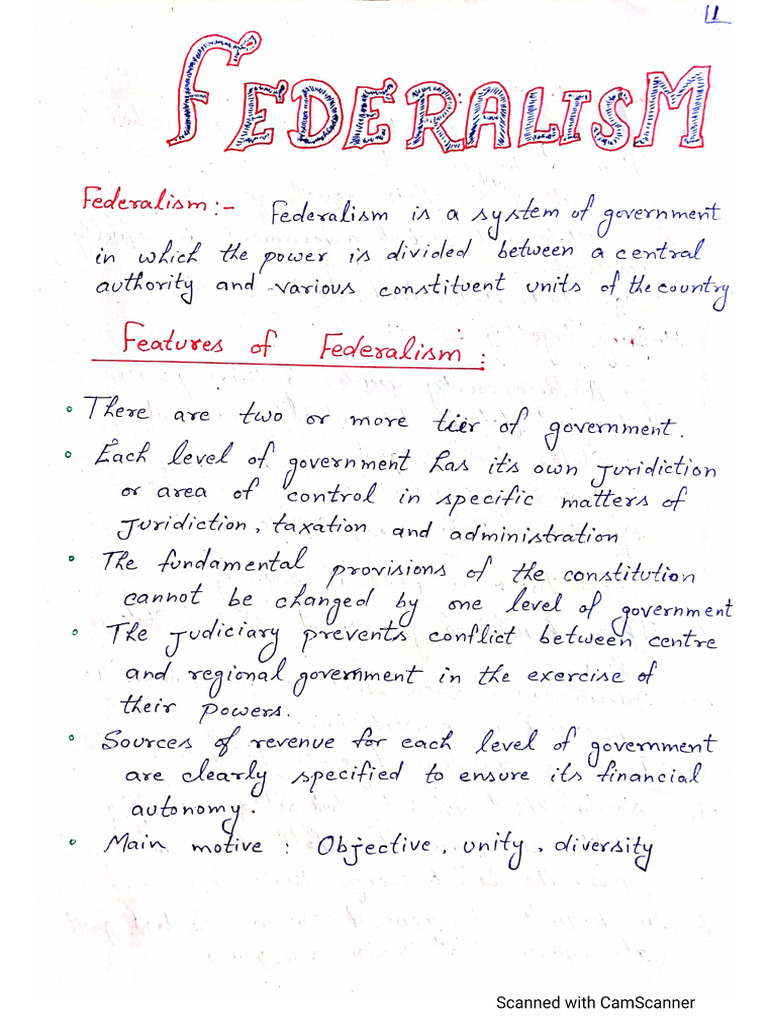 11
FEDERALISM
Federalism :- Federalism is a system of government
in which the power is divided between a central
authority and various constituent units of the country
Features of Federalism :
• There are two or more tier of government.
• Each level of government has it's own Juridiction
or area of control in specific matters of
Juridiction, taxation and administration
• The fundamental provisions of the constitution
cannot be changed by one level of government
• The Judiciary prevents conflict between centre
and regional government in the exercise of
their powers.
• Sources of revenue for each level of government
are clearly specified to ensure its financial
autonomy.
• Main motive : Objective, unity, diversity
Scanned with CamScanner